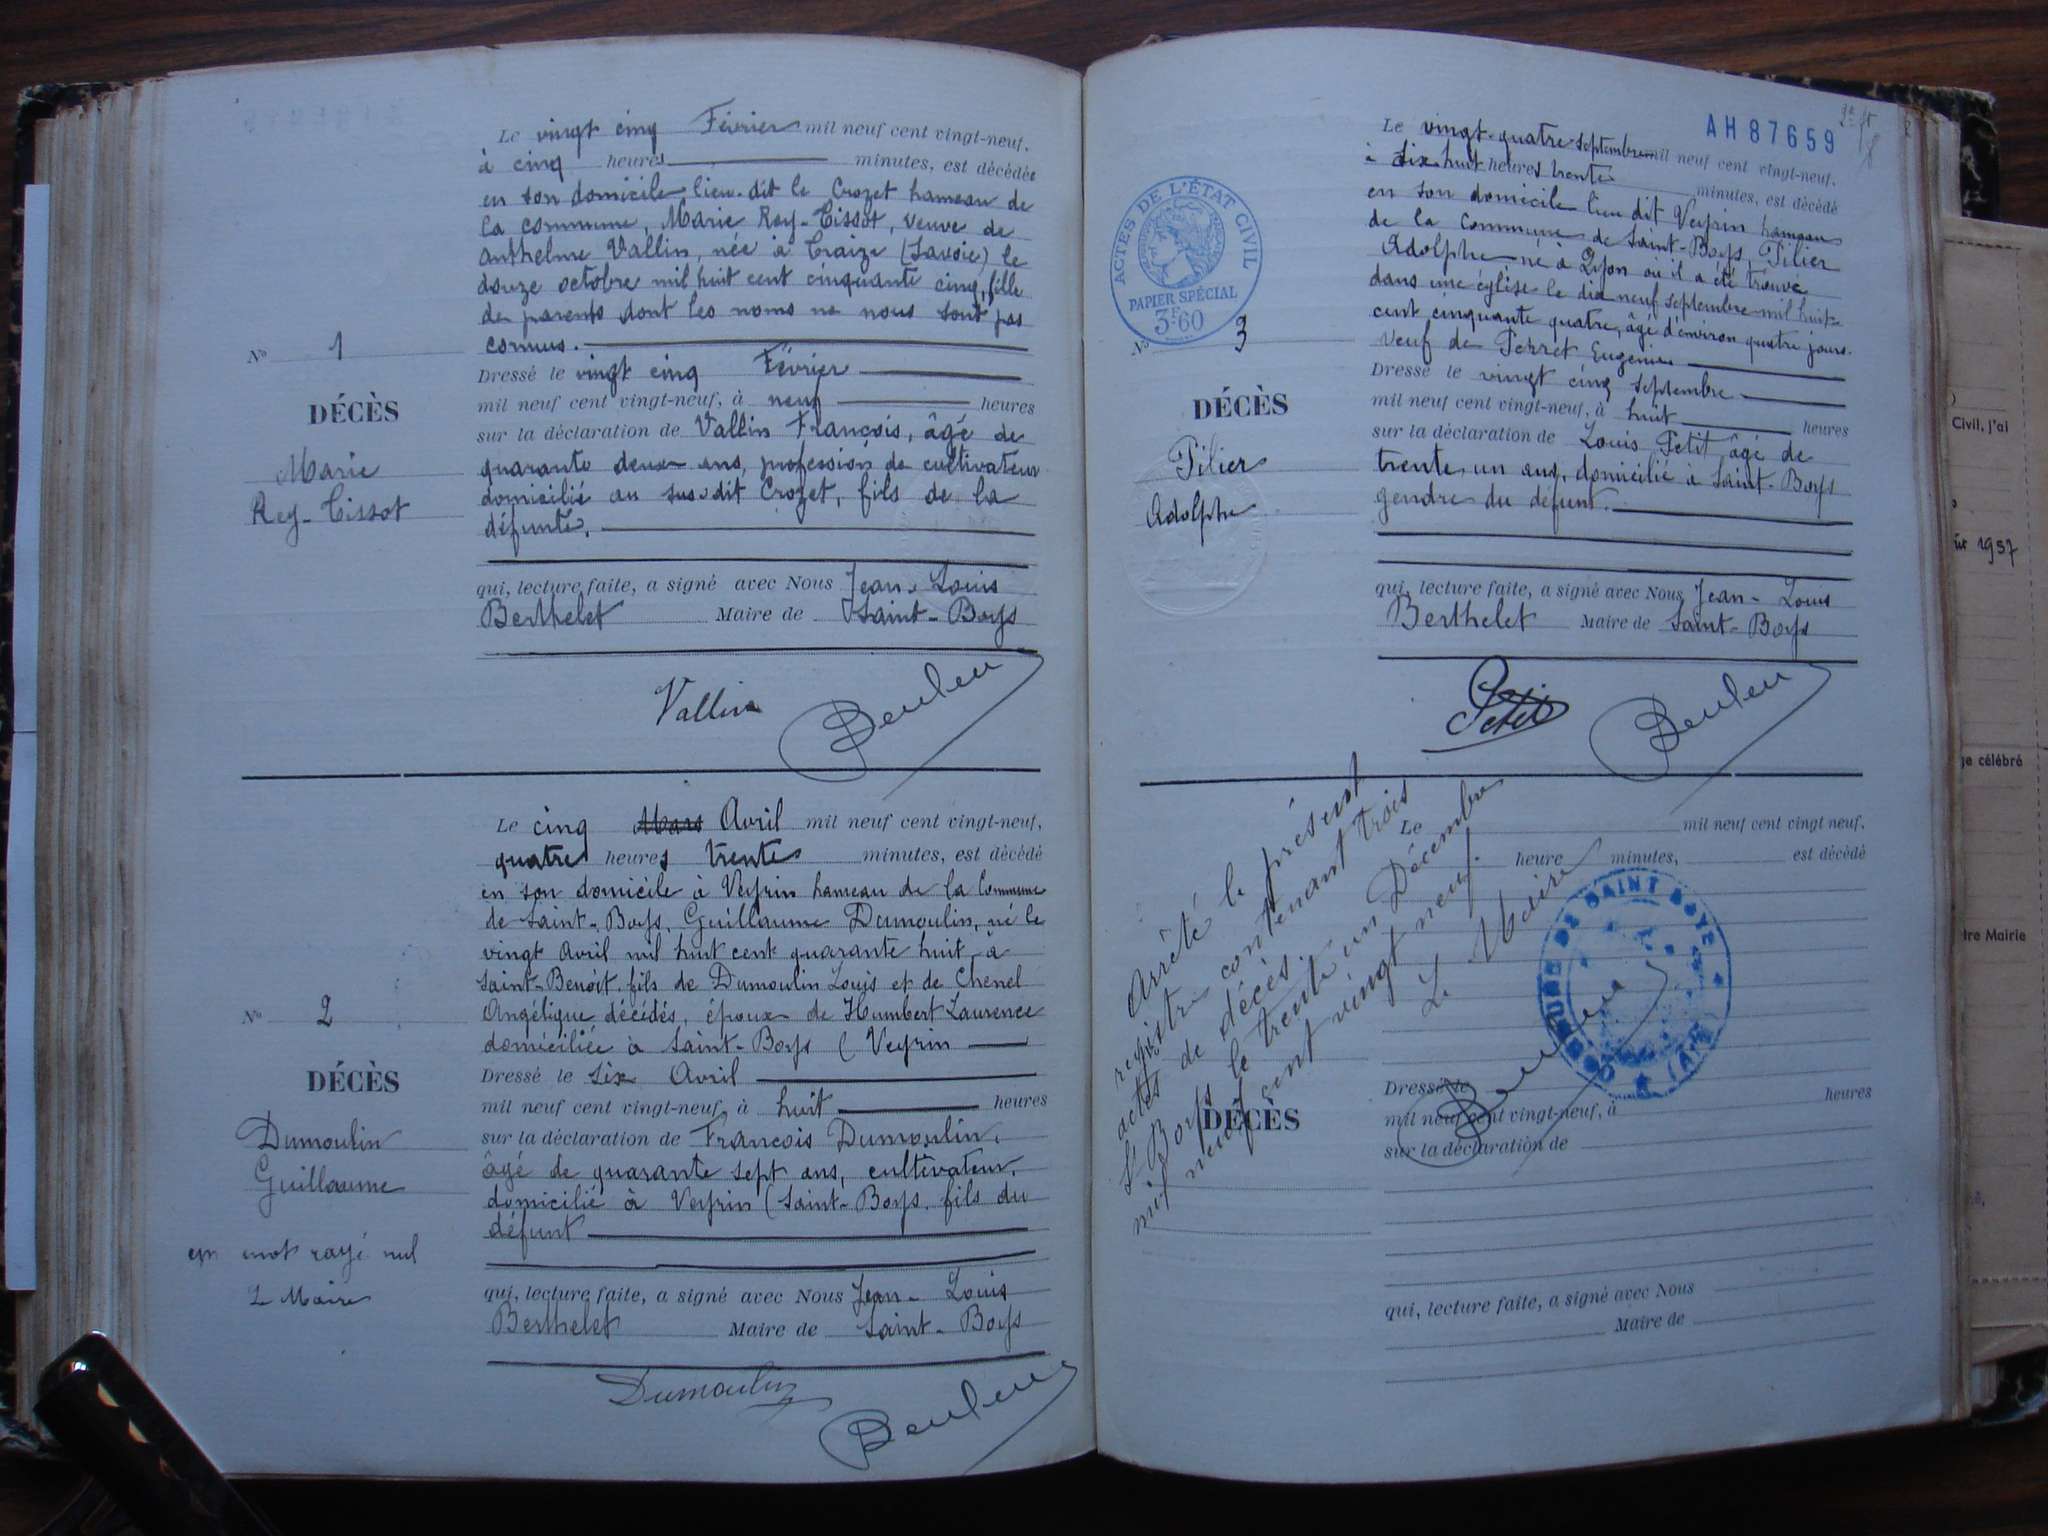 Le vingt cinq Février mil neuf cent vingt-neuf,
à cinq heures minutes, est décédée
en son domicile lieu-dit le Crozet hameau de
la commune, Marie Rey-Tissot, veuve de
Anthelme Vallin, née à Traize (Savoie) le
douze octobre mil huit cent cinquante cinq, fille
de parents dont les noms ne nous sont pas
connus.
No 1
Dressé le vingt cinq Février
mil neuf cent vingt-neuf, à neuf heures
DÉCÈS
sur la déclaration de Vallin François, âgé de
Marie
quarante deux ans, profession de cultivateur
domicilié au susdit Crozet, fils de la
Rey-Tissot
défunte.
qui, lecture faite, a signé avec Nous Jean-Louis
Berthelet Maire de Saint-Boys
Vallin
Le cinq Mars Avril mil neuf cent vingt-neuf,
quatre heures trente minutes, est décédé
en son domicile à Veyrin hameau de la Commune
de Saint-Boys, Guillaume Dumoulin, né le
vingt Avril mil huit cent quarante huit à
Saint-Benoit, fils de Dumoulin Louis et de Chenel
No 2
Angélique décédés, époux de Humbert Laurence
domiciliée à Saint-Boys (Veyrin
Dressé le six Avril
DÉCÈS
mil neuf cent vingt-neuf, à huit heures
sur la déclaration de François Dumoulin,
Dumoulin
âgé de quarante sept ans, cultivateur,
Guillaume
domicilié à Veyrin (Saint-Boys, fils du
défunt
un mot rayé nul
L Maire
qui, lecture faite, a signé avec Nous Jean-Louis
Berthelet Maire de Saint-Boys
Dumoulin
AH 87659
Le vingt-quatre septembre mil neuf cent vingt-neuf,
à dix huit heures trente minutes, est décédé
en son domicile lieu dit Veyrin hameau
de la commune de Saint-Boys, Pilier
Adolphe né à Lyon où il a été trouvé
dans une église le dix neuf septembre mil huit
cent cinquante quatre, âgé d'environ quatre jours.
veuf de Perret Eugénie
ACTES DE L'ÉTAT CIVIL
PAPIER SPÉCIAL
3F60
No 3
Dressé le vingt cinq septembre
mil neuf cent vingt-neuf, à huit heures
DÉCÈS
sur la déclaration de Louis Petit, âgé de
Pilier
trente un ans, domicilié à Saint-Boys
Adolphe
gendre du défunt.
qui, lecture faite, a signé avec Nous Jean-Louis
Berthelet Maire de Saint-Boys
Petit
Arrêté le présent
registre contenant trois
actes de décès.
St Boys le trente un Décembre
mil neuf cent vingt neuf.
Le Maire
COMMUNE DE SAINT BOYS
(AIN)
Le mil neuf cent vingt neuf,
heure minutes, est décédé
Dressé le
DÉCÈS
mil neuf cent vingt-neuf, à heures
sur la déclaration de
qui, lecture faite, a signé avec Nous
Maire de
Civil, j'ai
1957
ge célébré
tre Mairie